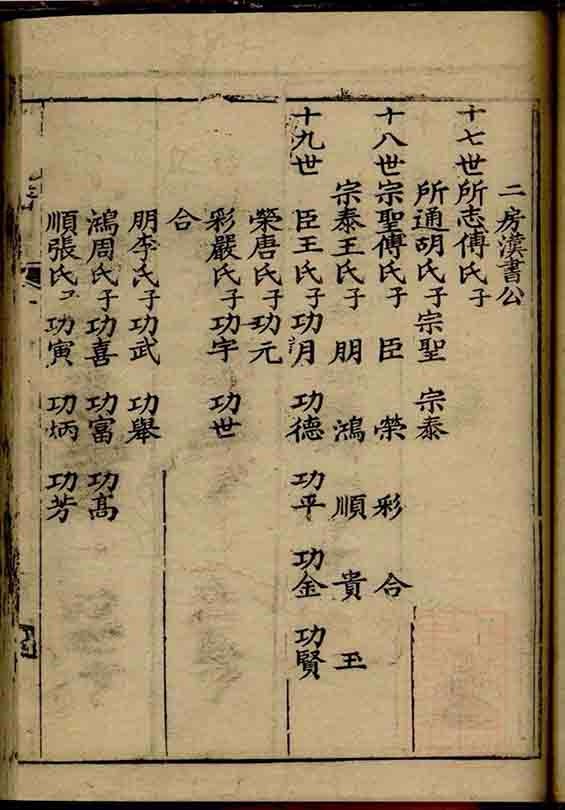 二房漢書公
十七世所志傅氏子
所通胡氏子宗聖 宗泰
十八世宗聖傅氏子 臣 榮 彩 合
宗泰王氏子 朋 鴻 順 貴 玉
十九世 臣王氏子功 功德 功平 功金 功賢
榮唐氏子功元
彩嚴氏子功宇 功世
合
朋李氏子功武 功舉
鴻周氏子功喜 功富 功高
順張氏子功寅 功炳 功芳